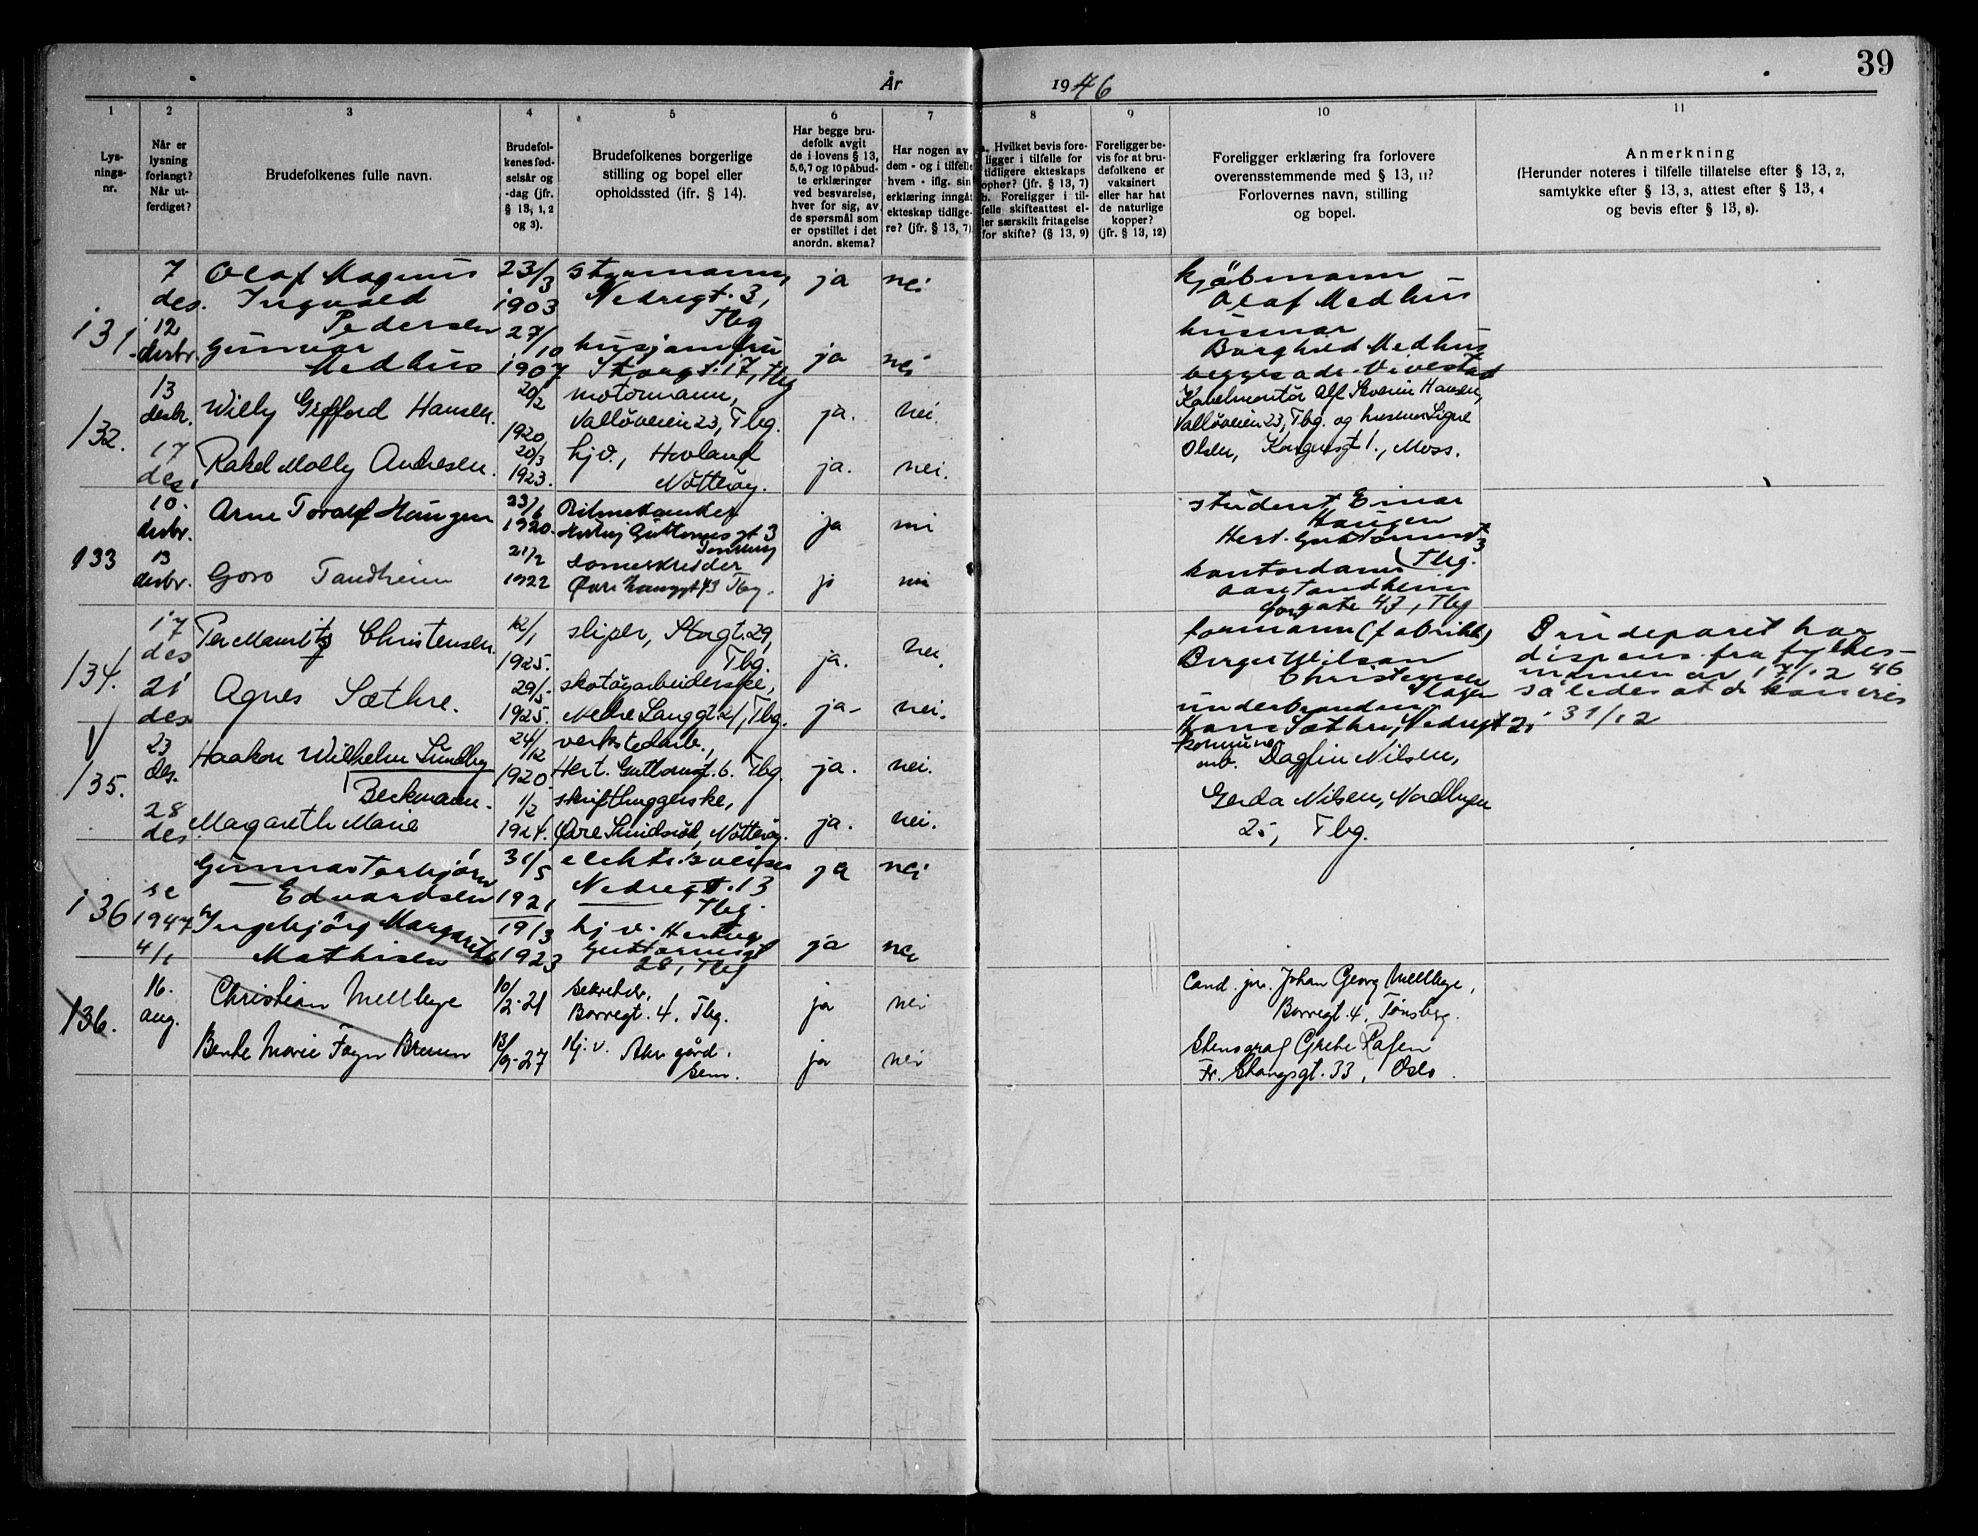 39
År 1946
1 2 3 4 5 6 7 8 9 10 11
Lys-
nings-
nr.
Når er
lysning
forlangt?
Når ut-
ferdiget?
Brudefolkenes fulle navn.
Brudefol-
kenes fød-
selsår og
-dag (jfr.
§ 13, 1, 2
og 3).
Brudefolkenes borgerlige
stilling og bopel eller
opholdssted (ifr. § 14).
Har begge bru-
defolk avgit
de i lovens § 13,
5,6,7 og 10 påbud-
te erklæringer
ved besvarelse,
hver for sig, av
de spørsmål som
er opstillet i det
anordn. skema?
Har nogen av
dem - og i tilfelle
hvem - iflg. sin
erklæring inngåt
ekteskap tidlige-
re? (jfr. § 13, 7)
a. Hvilket bevis fore-
ligger i tilfelle for
tidligere ekteskaps
ophør? (jfr. § 13, 7)
b. Foreligger i til-
felle skifteattest el-
ler særskilt fritagelse
for skifte? (§ 13, 9)
Foreligger be-
vis for at bru-
defolkene er
vaksinert
eller har hat
de naturlige
kopper?
(jfr. § 13, 12)
Foreligger erklæring fra forlovere
overensstemmende med § 13, 11?
Forlovernes navn, stilling
og bopel.
Anmerkning
(Herunder noteres i tilfelle tillatelse efter § 13, 2,
samtykke efter § 13, 3, attest efter § 13, 4
og bevis efter § 13, 8).
131.
7
des.
12
desbr.
Olaf Magnus
Ingvald
Pedersen
23/3
1903
styrmann,
Nedregt. 3,
Tbg
ja nei
Gunvor
Medhus
27/10
1907
husjomfru
Storgt. 17, Tbg
ja nei
kjöbmann
Olaf Medhus
husmor
Borghild Medhus
begges adr. Vivestad
132.
13
desbr.
17
des.
Willy Gifford Hansen.
20/2
1920
motormann,
Valløveien 23, Tbg.
ja. nei.
Rakel Molly Andresen.
20/3
1923.
hj.v., Hovland
Nøtterøy.
ja. nei.
Kabelmontör Alf Severin Hansen,
Valløveien 23, Tbg. og husmor Signe
Olsen, Kongensgt 1., Moss.
133
10.
desbr.
13
desbr.
Arne Toralf Haugen
23/6
1920.
Hertug Guttormsgt 3
Tønsberg
ja nei
Goro Tandheim
21/2
1922
Øvre Langgt 43 Tbg.
ja nei
student Einar
Haugen
Hert. Guttormsgt 3
Tbg.
kontordame
Aase Tandheim
43, Tbg
134.
17
des
21
des
Per Mauritz Christensen.
12/1
1925.
sliper, Storgt. 29,
Tbg.
ja. nei.
Agnes Sæthre.
29/5
1925.
skotøyarbeiderske,
Nedre Langgt 21, Tbg.
ja- nei.
formann (fabrikk)
Birger Wilson
Christensen
Slagen
underbrandm.
Hans Sæthre, Nedregt 2.
Brudeparet har
dispens. fra fylkes-
mannen av 17/12 46
således at de kan vies
31/12
135.
23
des.
28
des
Haakon Wilhelm Sundby
Beckmann.
24/12
1920.
verkstedarb.,
Hert. Guttormsgt. 6. Tbg.
ja. nei.
Margareth Marie
1/2
1924.
skrifthuggerske,
Øvre Smidsrød, Nøtterøy.
ja. nei.
kommune
arb. Dagfin Nilsen,
Gerda Nilsen, Nordbyen
25, Tbg.
136
se
1947
4/1
Gunnar Torbjörn
Edvardsen
31/5
1921
elektr. sveiser
Nedregt. 13
Tbg.
ja nei
Ingebjörg Margarete
Mathisen
19/3
1923
hj v. Hertug
Guttormsgt
28, Tbg
ja nei
136.
16.
aug.
Christian Mellbye
10/2-21
sekretær,
Borregt. 4. Tbg.
ja nei
Bente Marie Fayn Bruun
13/9-27
Hj. v. Aker gård.
Sem.
ja nei
Cand. jur. Johan Georg Mellbye,
Borregt. 4. Tønsberg.
Stenograf Grete Rafen
Fr. Stangsgt. 33, Oslo.